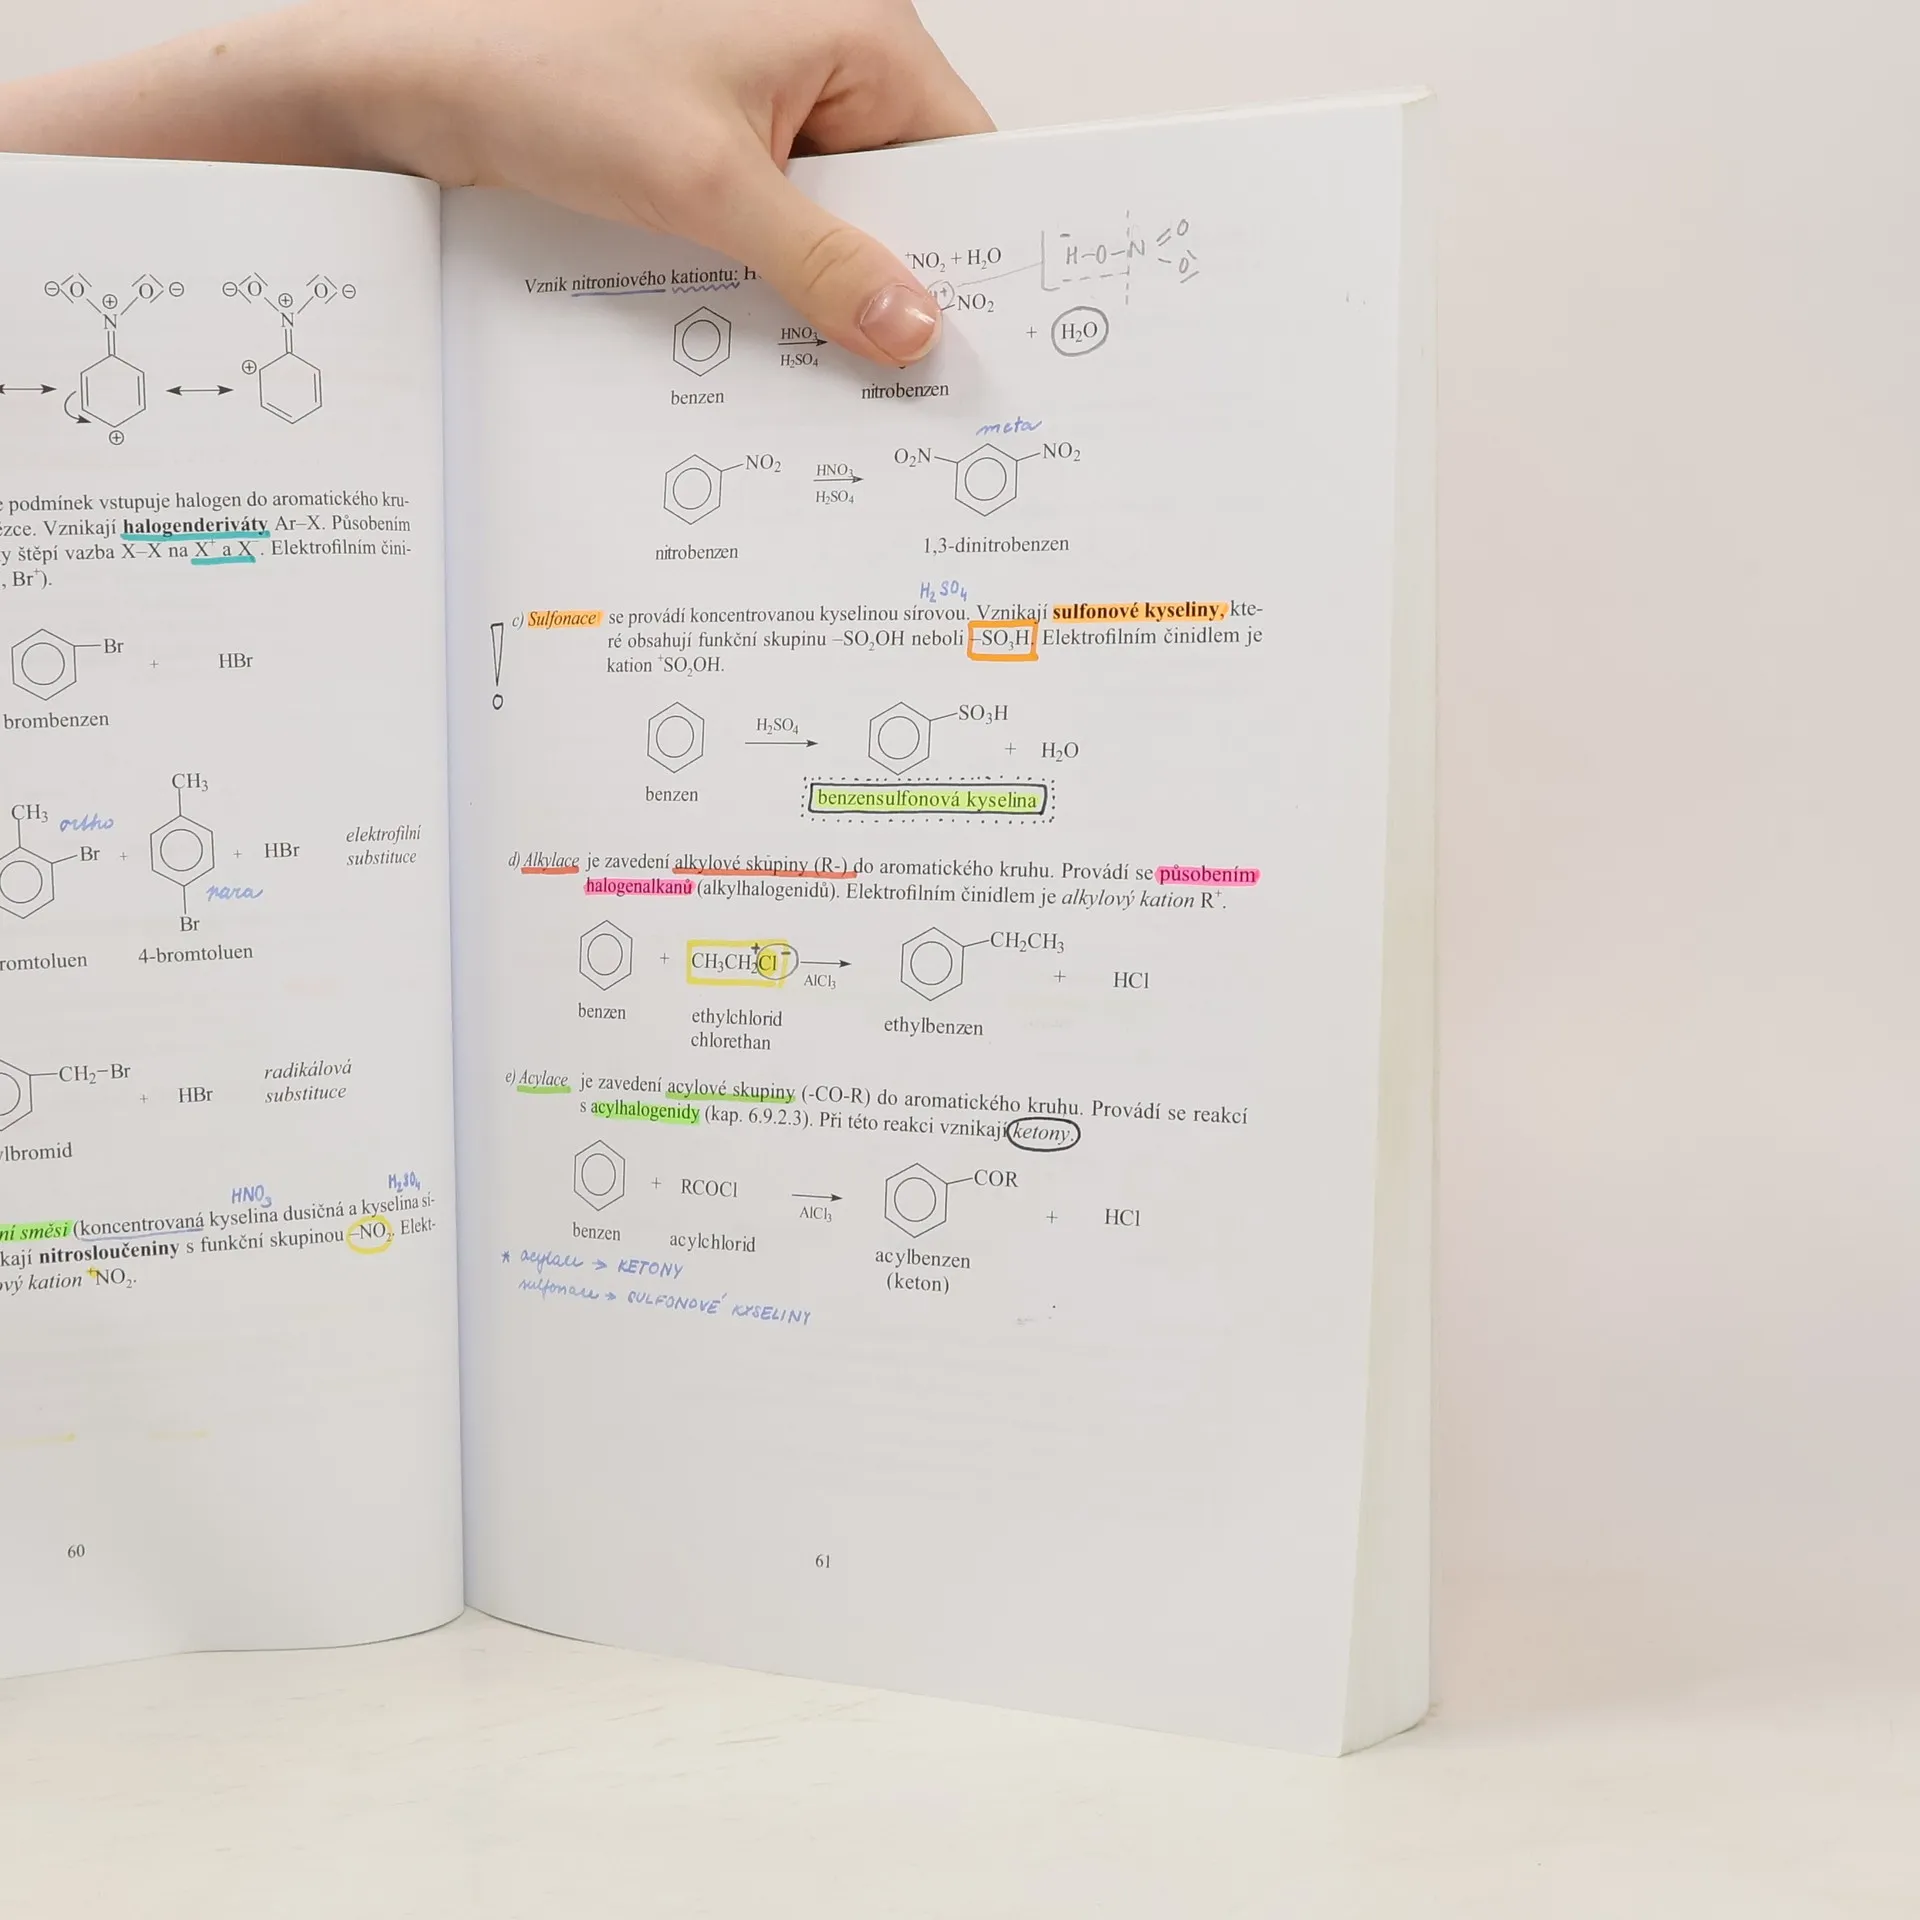 ⊖ O O ⊖
⊕
N
⊕
⊖ O O ⊖
⊕
N
⊕
podmínek vstupuje halogen do aromatického kru-
Vznikají halogenderiváty Ar–X. Působením
štěpí vazba X–X na X⁺ a X⁻. Elektrofilním čini-
, Br⁺).
Br
+ HBr
brombenzen
CH₃
CH₃ ortho
Br + + HBr elektrofilní
substituce
para
Br
4-bromtoluen
CH₂–Br
+ HBr radikálová
substituce
HNO₃ H₂SO₄
směsi (koncentrovaná kyselina dusičná a kyselina sí-
nitrosloučeniny s funkční skupinou –NO₂. Elekt-
kation ⁺NO₂.
60
Vznik nitroniového kationtu: ⁺NO₂ + H₂O
H–O–N=O
–O
HNO₃
H₂SO₄
–NO₂
+ H₂O
benzen nitrobenzen
meta
NO₂ HNO₃ O₂N NO₂
H₂SO₄
nitrobenzen 1,3-dinitrobenzen
H₂SO₄
c) Sulfonace se provádí koncentrovanou kyselinou sírovou. Vznikají sulfonové kyseliny, kte-
ré obsahují funkční skupinu –SO₂OH neboli –SO₃H. Elektrofilním činidlem je
kation ⁺SO₂OH.
H₂SO₄ SO₃H
+ H₂O
benzen benzensulfonová kyselina
d) Alkylace je zavedení alkylové skupiny (R-) do aromatického kruhu. Provádí se působením
halogenalkanů (alkylhalogenidů). Elektrofilním činidlem je alkylový kation R⁺.
+ CH₃CH₂Cl + – AlCl₃ CH₂CH₃ + HCl
benzen ethylchlorid ethylbenzen
chlorethan
e) Acylace je zavedení acylové skupiny (-CO-R) do aromatického kruhu. Provádí se reakcí
s acylhalogenidy (kap. 6.9.2.3). Při této reakci vznikají ketony.
+ RCOCl AlCl₃ COR + HCl
benzen acylchlorid acylbenzen
(keton)
* acylace → KETONY
sulfonace → SULFONOVÉ KYSELINY
61